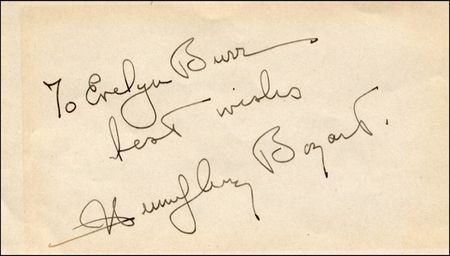 To Evelyn Burr
best wishes
Humphrey Bogart.